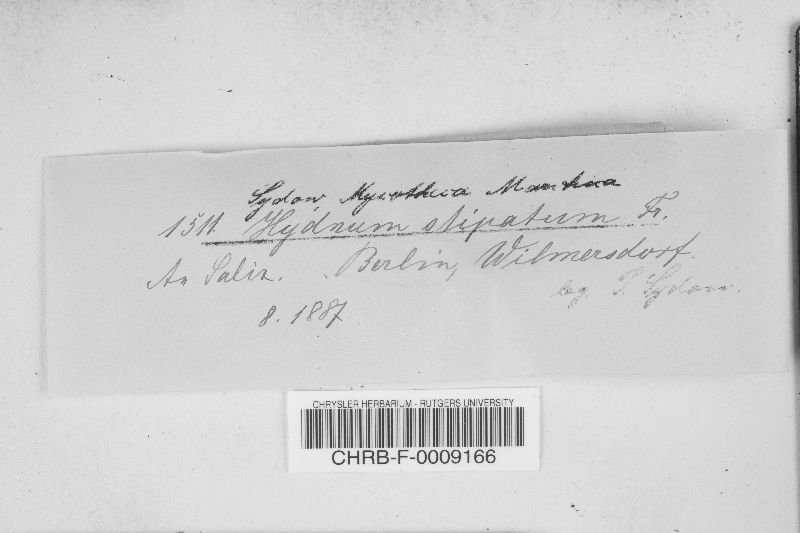 Sydow Mycotheca Marchica
1511. Hydnum stipatum Fr.
An Salix. Berlin, Wilmersdorf.
leg. P. Sydow.
8. 1887
CHRYSLER HERBARIUM - RUTGERS UNIVERSITY
CHRB-F-0009166